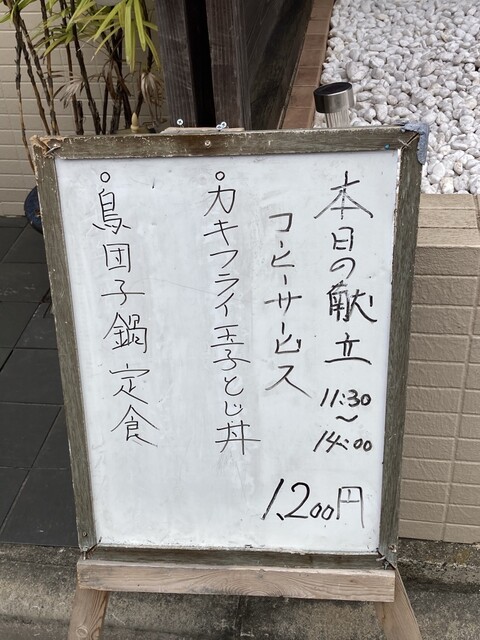 本日の献立 11:30〜14:00
コーヒーサービス
1,200円
○カキフライ玉子とじ丼
○鳥団子鍋定食